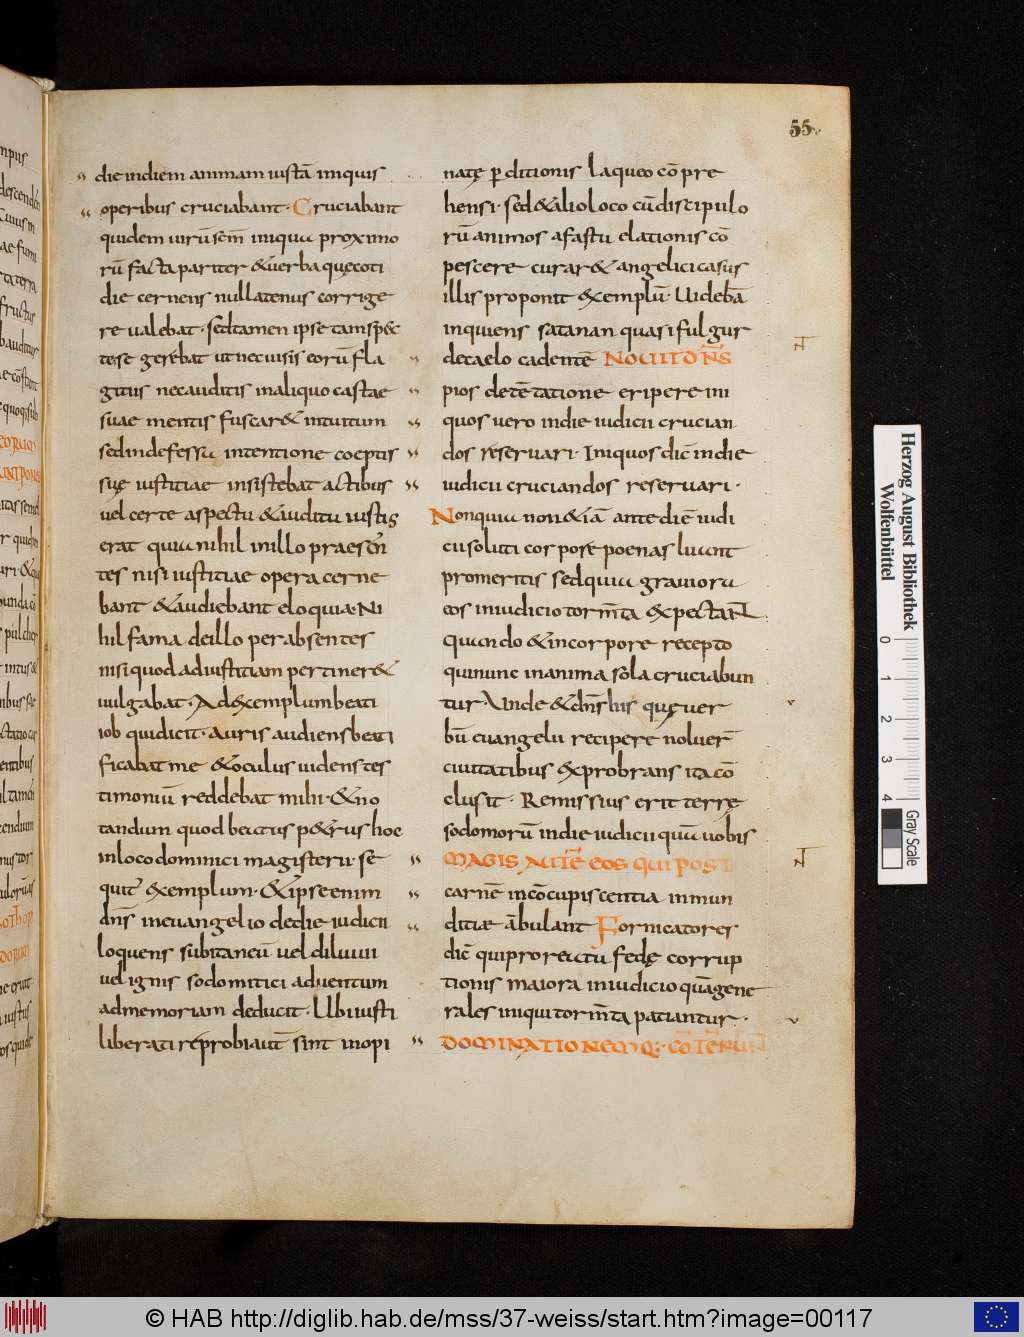 55.
die indiem animam iustā iniquis
operibus cruciabant· Cruciabant
quidem uirū sem̄ iniqui proximo
rū facta pariter & uerba quę coti
die cernens nullatenus corrige
re ualebat· sed tamen ipse tam sp&c
te se gerebat ut nec uisis eorū fla
gitiis nec auditis in aliquo castae
suae mentis fuscar& intuitum
sed indefessa intentione coeptis
suę iustitiae insistebat actibus
uel certe aspectu & auditu iustus
erat quia nihil in illo praesen
tes nisi iustitiae opera cerne
bant & audiebant eloquia· Ni
hil fama de illo per absentes
nisi quod ad iustitiam pertiner&
uulgabat· Ad exemplum beati
iob qui dicit· Auris audiens beati
ficabat me & oculus uidens tes
timoniū reddebat mihi· & no
tandum quod beatus p&rus hoc
in loco dominici magisterii se
quit̄ exemplum· & ipse enim
dn̄s in euangelio de die iudicii
loquens subitaneū uel diluuii
uel ignis sodomitici aduentum
ad memoriam deducit· Ubi iusti
liberati reprobi aut̄ sint inopi
natę perditionis laqueo cōpre
hensi· sed & alio loco cū discipulo
rū animos a fastu elationis cō
pescere curar& angelici casus
illis proponit exemplū· Uidebā
inquiens satanan quasi fulgur
de caelo cadentē NOUIT DN̄S
pios de tēτatione eripere ini
quos uero in die iudicii crucian
dos reseruari· Iniquos dic̄ in die
iudicii cruciandos reseruari·
Non quia non & iā ante diē iudi
cii soluti corpore poenas luunt
pro meritis sed quia grauiora
eos in iudicio torm̄ta expectant
quando & in corpore recepto
qui nunc in anima sola cruciabun
tur· Unde & dn̄s his quę uer
bū euangelii recipere noluer̄
ciuitatibus exprobrans ita cō
clusit· Remissius erit terrę
sodomorū in die iudicii quā uobis
MAGIS AUTĒ EOS QUI POST
carnē in cōcupiscentia inmun
ditiæ ābulant Fornicatores
dic̄ qui pro reatu fedę corrup
tionis maiora in iudicio quā gene
rales iniqui torm̄ta patiantur·
DOMINATIONEMQ:· CŌTĒNUN
Herzog August Bibliothek
Wolfenbüttel
0 1 2 3 4
Gray Scale
© HAB http://diglib.hab.de/mss/37-weiss/start.htm?image=00117